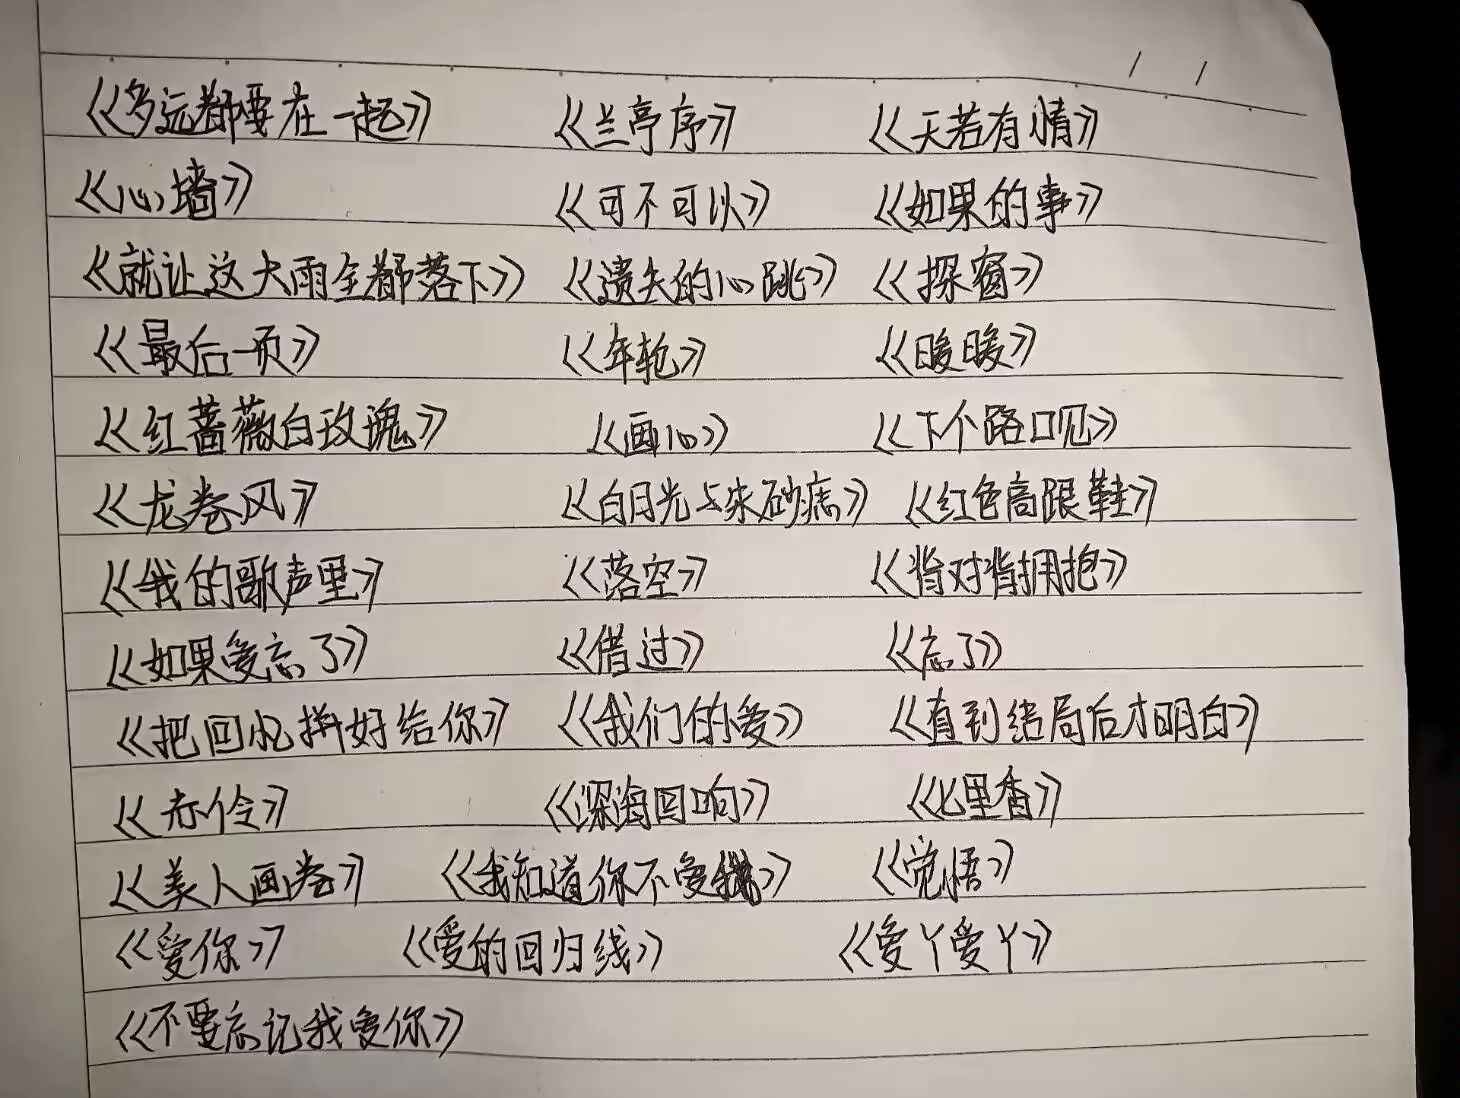 《多远都要在一起》 《兰亭序》 《天若有情》
《心墙》 《可不可以》 《如果的事》
《就让这大雨全都落下》 《遗失的心跳》 《探窗》
《最后一页》 《年轮》 《暖暖》
《红蔷薇白玫瑰》 《画心》 《下个路口见》
《龙卷风》 《白月光与朱砂痣》 《红色高跟鞋》
《我的歌声里》 《落空》 《背对背拥抱》
《如果爱忘了》 《借过》 《忘了》
《把回忆拼好给你》 《我们的爱》 《直到结局后才明白》
《赤伶》 《深海回响》 《七里香》
《美人画卷》 《我知道你不爱我》 《觉悟》
《爱你》 《爱的回归线》 《爱丫爱丫》
《不要忘记我爱你》